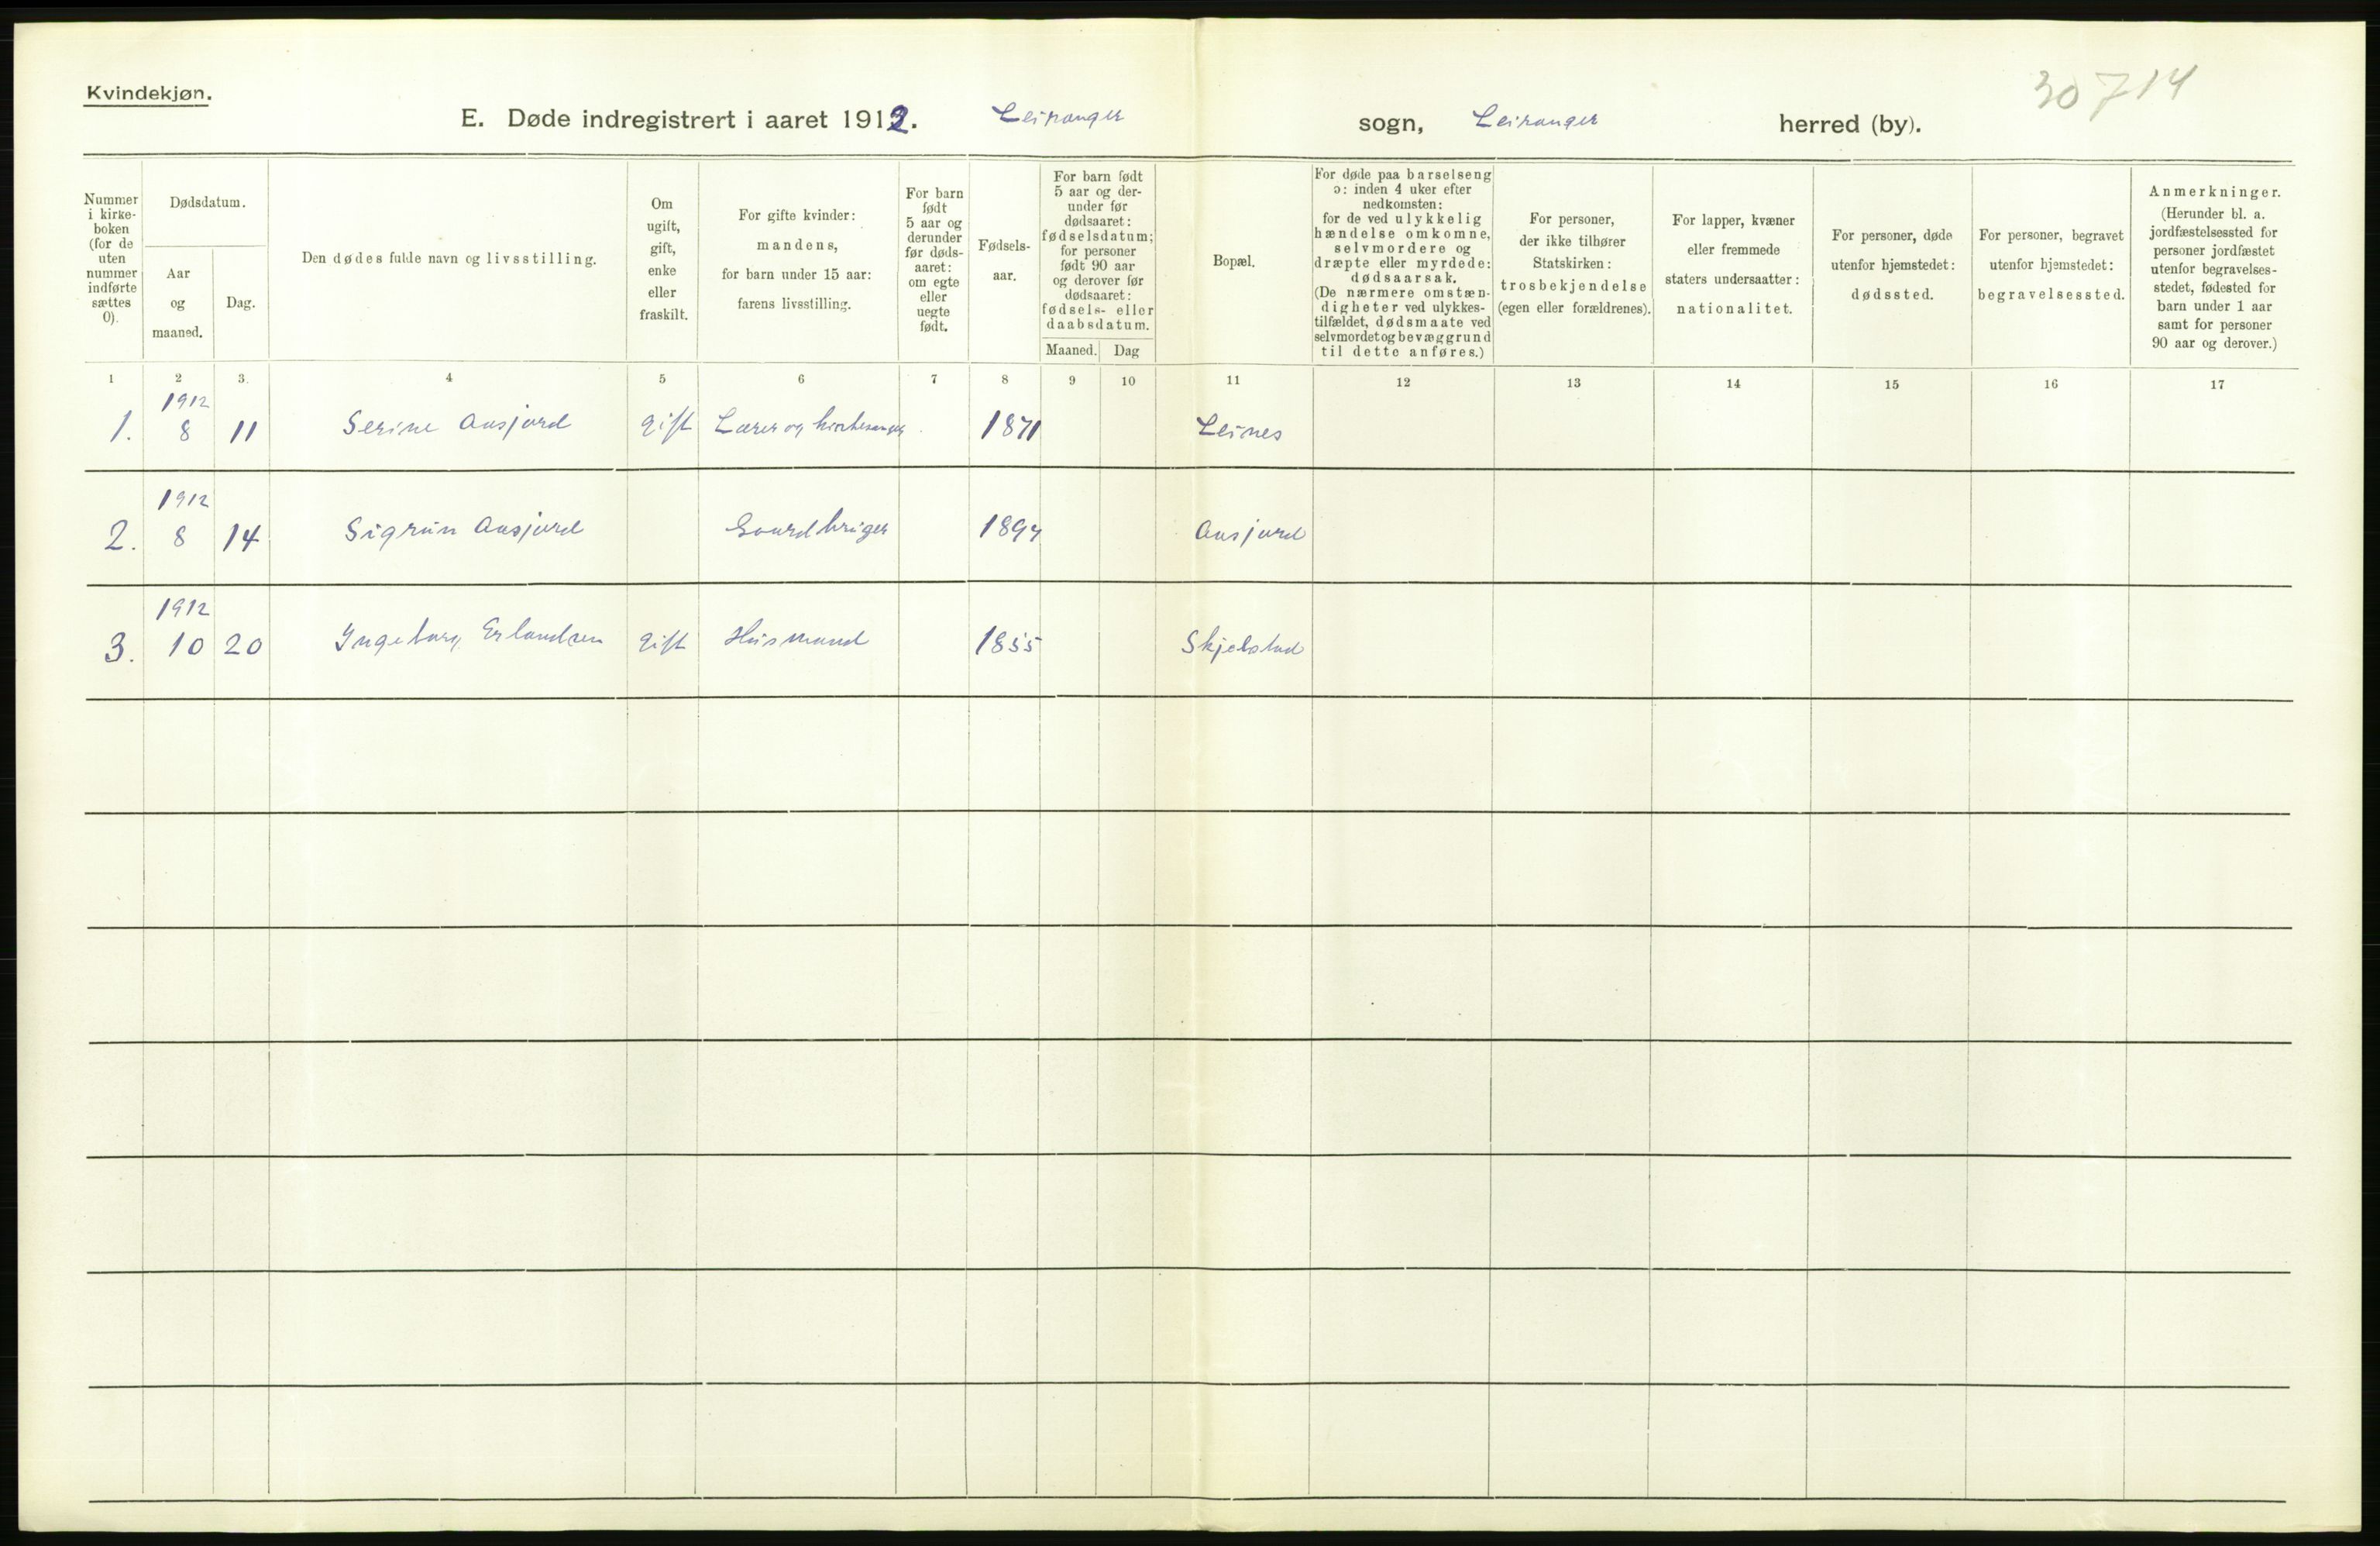 Kvindekjøn.
30714
E. Døde indregistrert i aaret 1912. Leiranger sogn, Leiranger herred (by).
Nummer i kirke- boken (for de uten nummer indførte sættes 0).
Dødsdatum.
Aar og maaned.
Dag.
Den dødes fulde navn og livsstilling.
Om ugift, gift, enke eller fraskilt.
For gifte kvinder: mandens, for barn under 15 aar: farens livsstilling.
For barn født 5 aar og derunder før døds- aaret: om egte eller uegte født.
Fødsels- aar.
For barn født 5 aar og der- under før dødsaaret: fødselsdatum; for personer født 90 aar og derover før dødsaaret: fødsels- eller daabsdatum.
Maaned. Dag
Bopæl.
For døde paa barselseng ɔ: inden 4 uker efter nedkomsten: for de ved ulykkelig hændelse omkomne, selvmordere og dræpte eller myrdede: dødsaarsak. (De nærmere omstæn- digheter ved ulykkes- tilfældet, dødsmaate ved selvmordet og bevæggrund til dette anføres.)
For personer, der ikke tilhører Statskirken: trosbekjendelse (egen eller forældrenes).
For lapper, kvæner eller fremmede staters undersaatter: nationalitet.
For personer, døde utenfor hjemstedet: dødssted.
For personer, begravet utenfor hjemstedet: begravelsessted.
Anmerkninger. (Herunder bl. a. jordfæstelsessted for personer jordfæstet utenfor begravelses- stedet, fødested for barn under 1 aar samt for personer 90 aar og derover.)
1 2 3. 4 5 6 7 8 9 10 11 12 13 14 15 16 17
1912
1. 8 11 Serine Aasjord gift Lærer og kirkesanger 1871 Leines
1912
2. 8 14 Sigrun Aasjord Gaardbruger 1897 Aasjord
1912
3. 10 20 Ingeborg Erlandsen gift Husmand 1855 Skjelstad